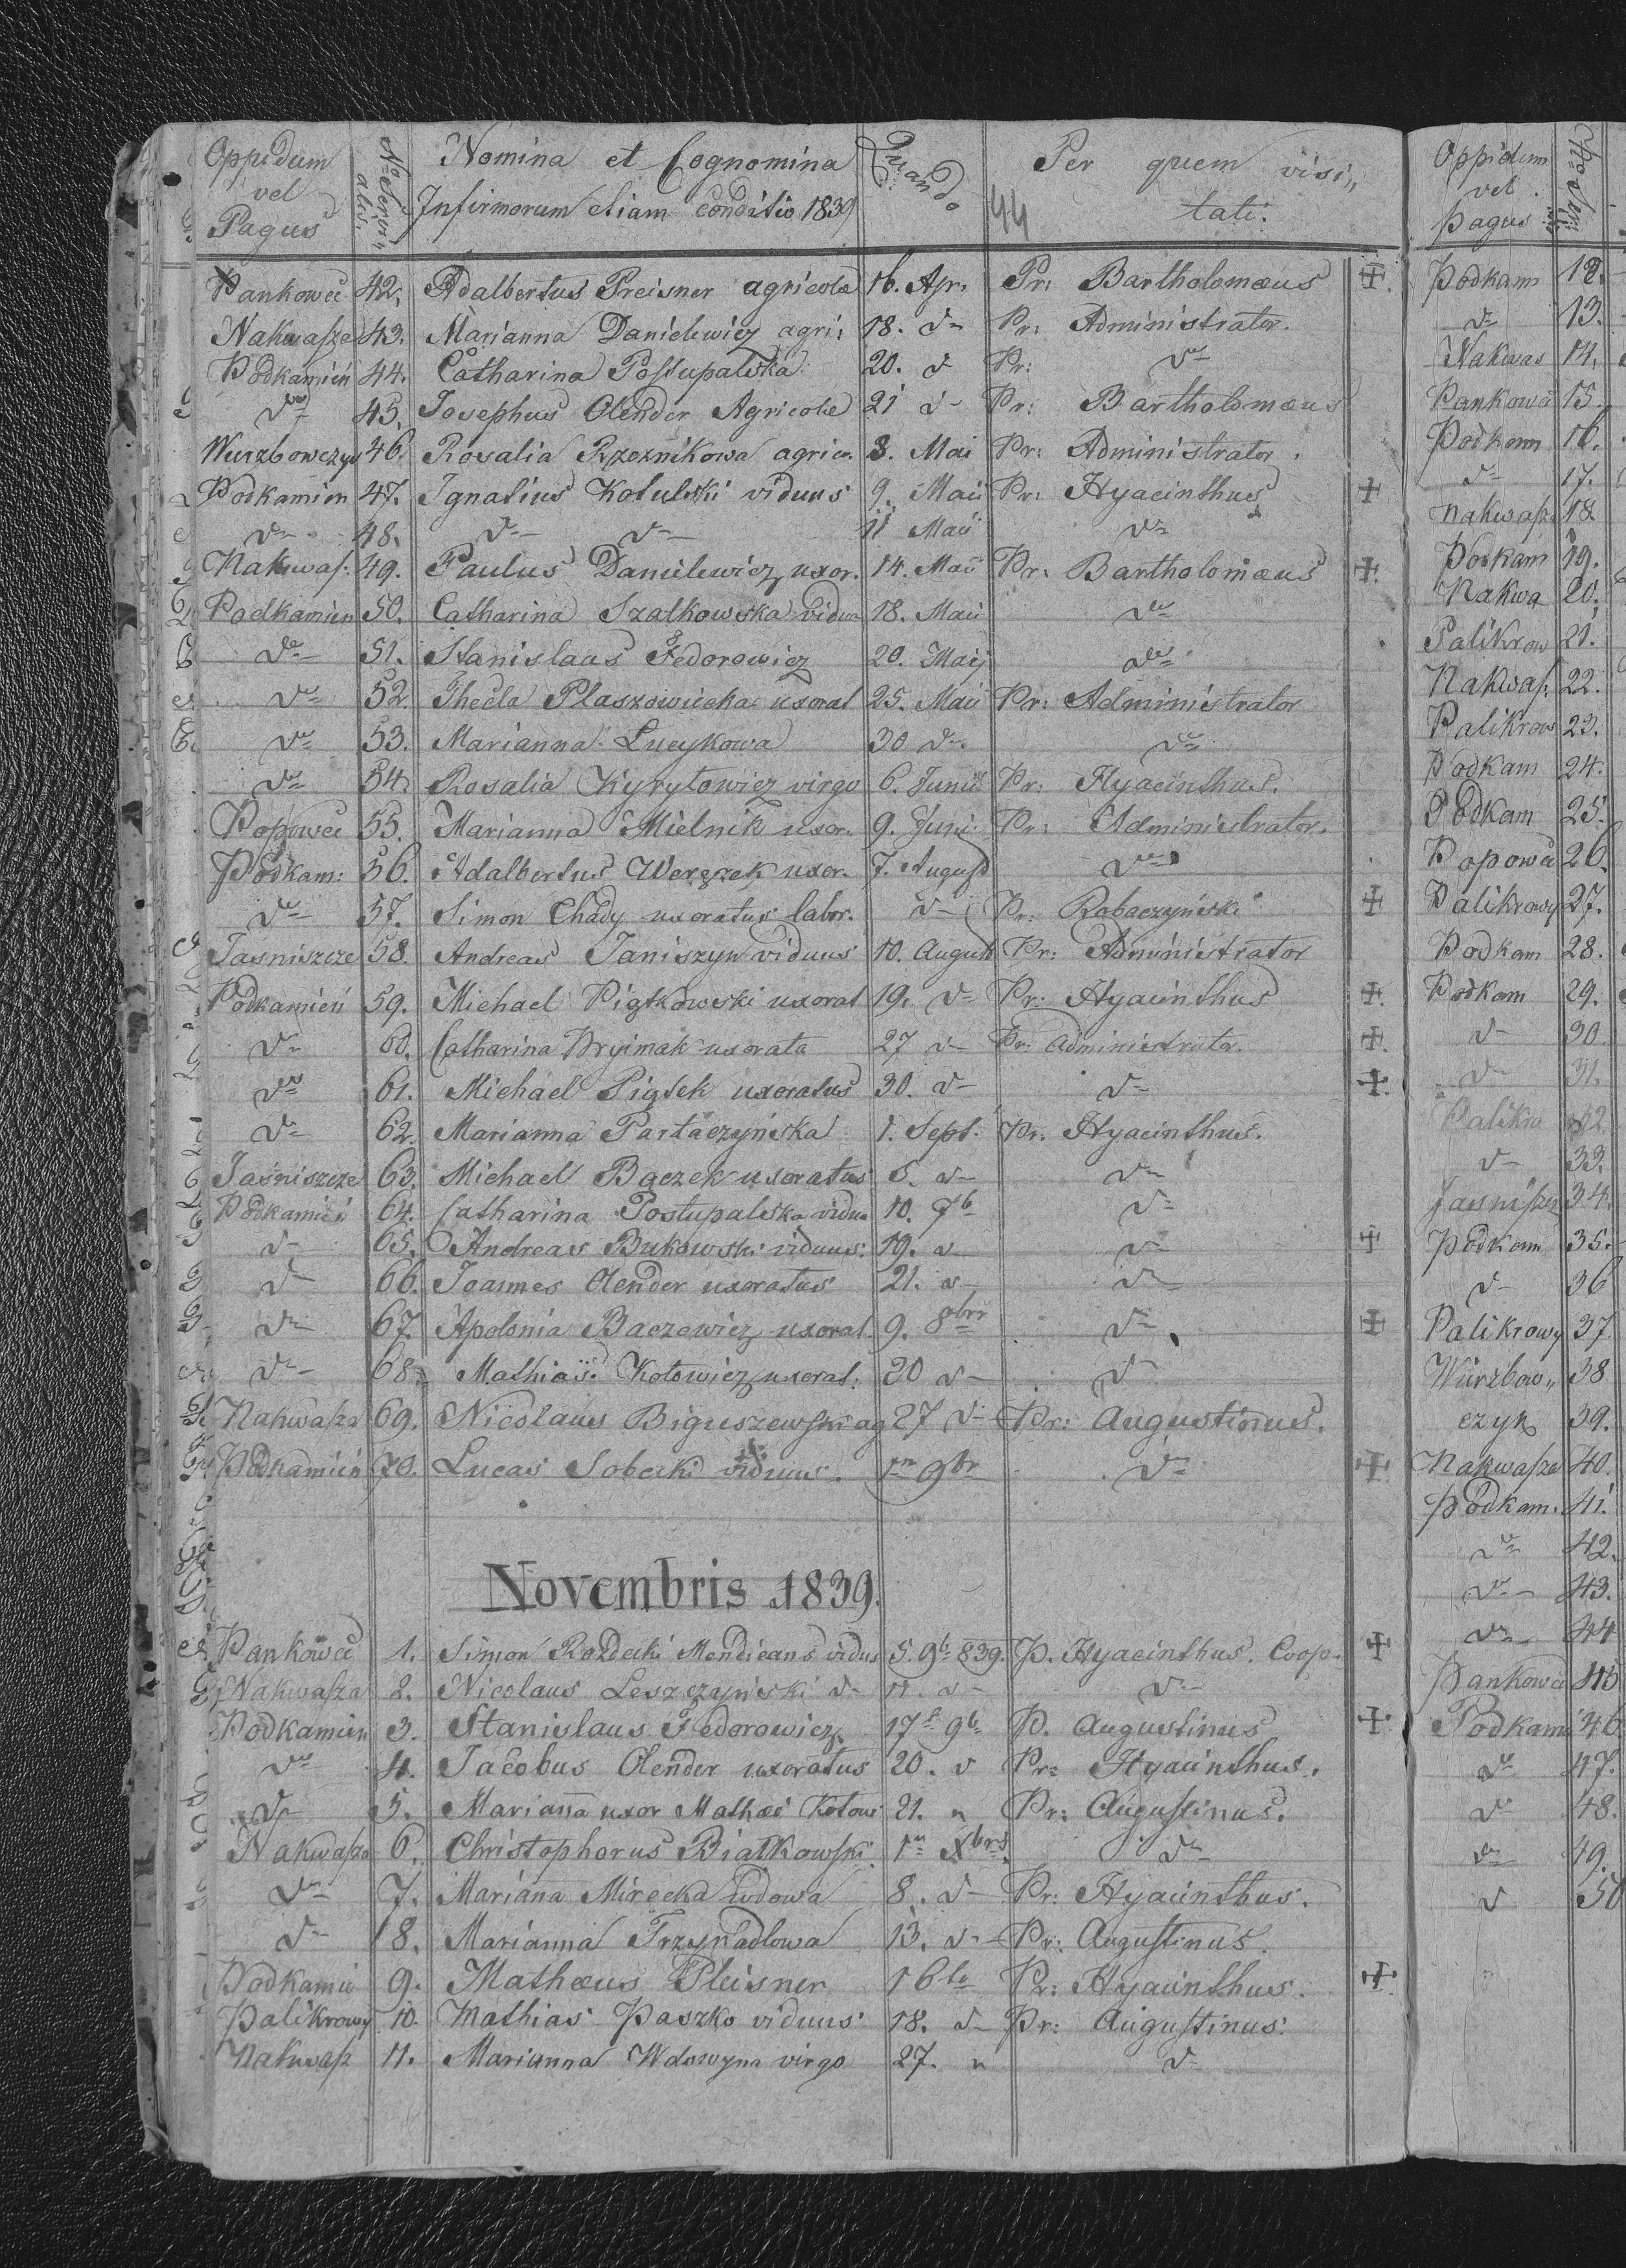 Oppidum vel Pagus | No Serin,, alis. | Nomina et Cognomina Infirmorum etiam conditio 1839 | Quando | 44 Per quem visi,, tati:
Pankowce 42. Adalbertus Preisner agricola 16. Apr. Pr: Bartholomæus ✠
Nakwasza 43. Marianna Danielewicz agri: 18. do Pr: Administrator.
Podkamień 44. Catharina Postupalska 20. do Pr: do
do 45. Josephus Olender Agricola 21 do Pr: Bartholomæus
Wurzbowczyk 46. Rosalia Rzeznikowa agrico. 3. Mai Pr: Administrator.
Podkamien 47. Ignatius Kotulski viduus 9. Maii Pr: Hyacinthus ✠
do 48. do do 11 Maii do
Nakwas: 49. Paulus Danielewicz uxor. 14. Maii Pr. Bartholomæus ✠
Podkamien 50. Catharina Szalkowska vidua 18. Maii do
do 51. Stanislaus Fedorowicz 20. Maij do
do 52. Thecla Plaszowiecka uxorat 25. Maii Pr: Administrator
do 53. Marianna Lucykowa 30 do do
do 54. Rosalia Kyrytowicz virgo 6. Junii Pr: Hyacinthus.
Popowce 55. Marianna Mielnik uxor. 9. Juni. Pr: Administrator.
Podkam: 56. Adalbertus Werszek uxor. 7. August do
do 57. Simon Chądy uxoratus labor. do Pr: Robaczyński ✠
Jasniszcze 58. Andreas Janiszyn viduus 10. August Pr: Administrator
Podkamień 59. Michael Piątkowski uxorat 19. do Pr: Hyacinthus ✠
do 60. Catharina Hryimak uxorata 27 do Pr: Administrator. ✠
do 61. Michael Piątek uxoratus 30. do do ✠
do 62. Marianna Partaczyńska 1. Sept. Pr. Hyacinthus.
Jaśniszcze 63. Michael Bączek uxoratus 5. do do
Podkamień 64. Catharina Postupalska vidua 10. 7b do
do 65. Andreas Bukowski viduus. 19. do do ✠
do 66. Joannes Olender uxoratus 21. do do
do 67. Apolonia Baczewicz uxorat. 9. 8bri do ✠
do 68. Mathias Kotowicz uxorat: 20 do do
Nakwasza 69. Nicolaus Biguszewski ag 27 do Pr: Augustinus.
Podkamień 70. Lucas Sobecki viduus. 1n 9br do ✠
Novembris 1839.
Pankowce 1. Simon Rozdecki Mendicans vidus 5. 9b 839. P. Hyacinthus. Coop. ✠
Nakwasza 2. Nicolaus Leszczyński do 11. do do
Podkamien 3. Stanislaus Fedorowicz 17 9b P. Augustinus ✠
do 4. Jacobus Olender uxoratus 20. do Pr: Hyacinthus.
do 5. Marianna uxor Mathæi Kotow 21. " Pr: Augustinus.
Nakwasza 6. Christophorus Białkowski 1n Xbris do
do 7. Mariana Mirecka wdowa 8. do Pr: Hyacinthus.
do 8. Marianna Trzynadlowa 13. do Pr: Augustinus.
Podkamie 9. Mathæus Pleisner 16ta Pr: Hyacinthus. ✠
Palikrowy 10. Mathias Paszko viduus 18. do Pr: Augustinus.
Nakwasz 11. Marianna Wdowyna virgo 27. " do
Oppidum vel pagus
Podkam 12.
do 13.
Nakwas 14.
Pankowce 15.
Podkam 16.
do 17.
Nakwasz 18
Podkam 19.
Nakwa 20.
Palikrow 21.
Nakwas. 22.
Palikrow 23.
Podkam 24.
Podkam 25.
Popowce 26.
Palikrowy 27.
Podkam 28.
Podkam 29.
do 30
do 31.
Palikro 32
do 33.
Jasniszcz 34.
Podkam 35.
do 36
Palikrowy 37
Wurzbow,, 38
czyk 39.
Nakwasza 40.
Podkam. 41.
do 42.
do 43.
do 44
Pankowce 45
Podkami 46.
do 47.
do 48.
do 49.
do 50